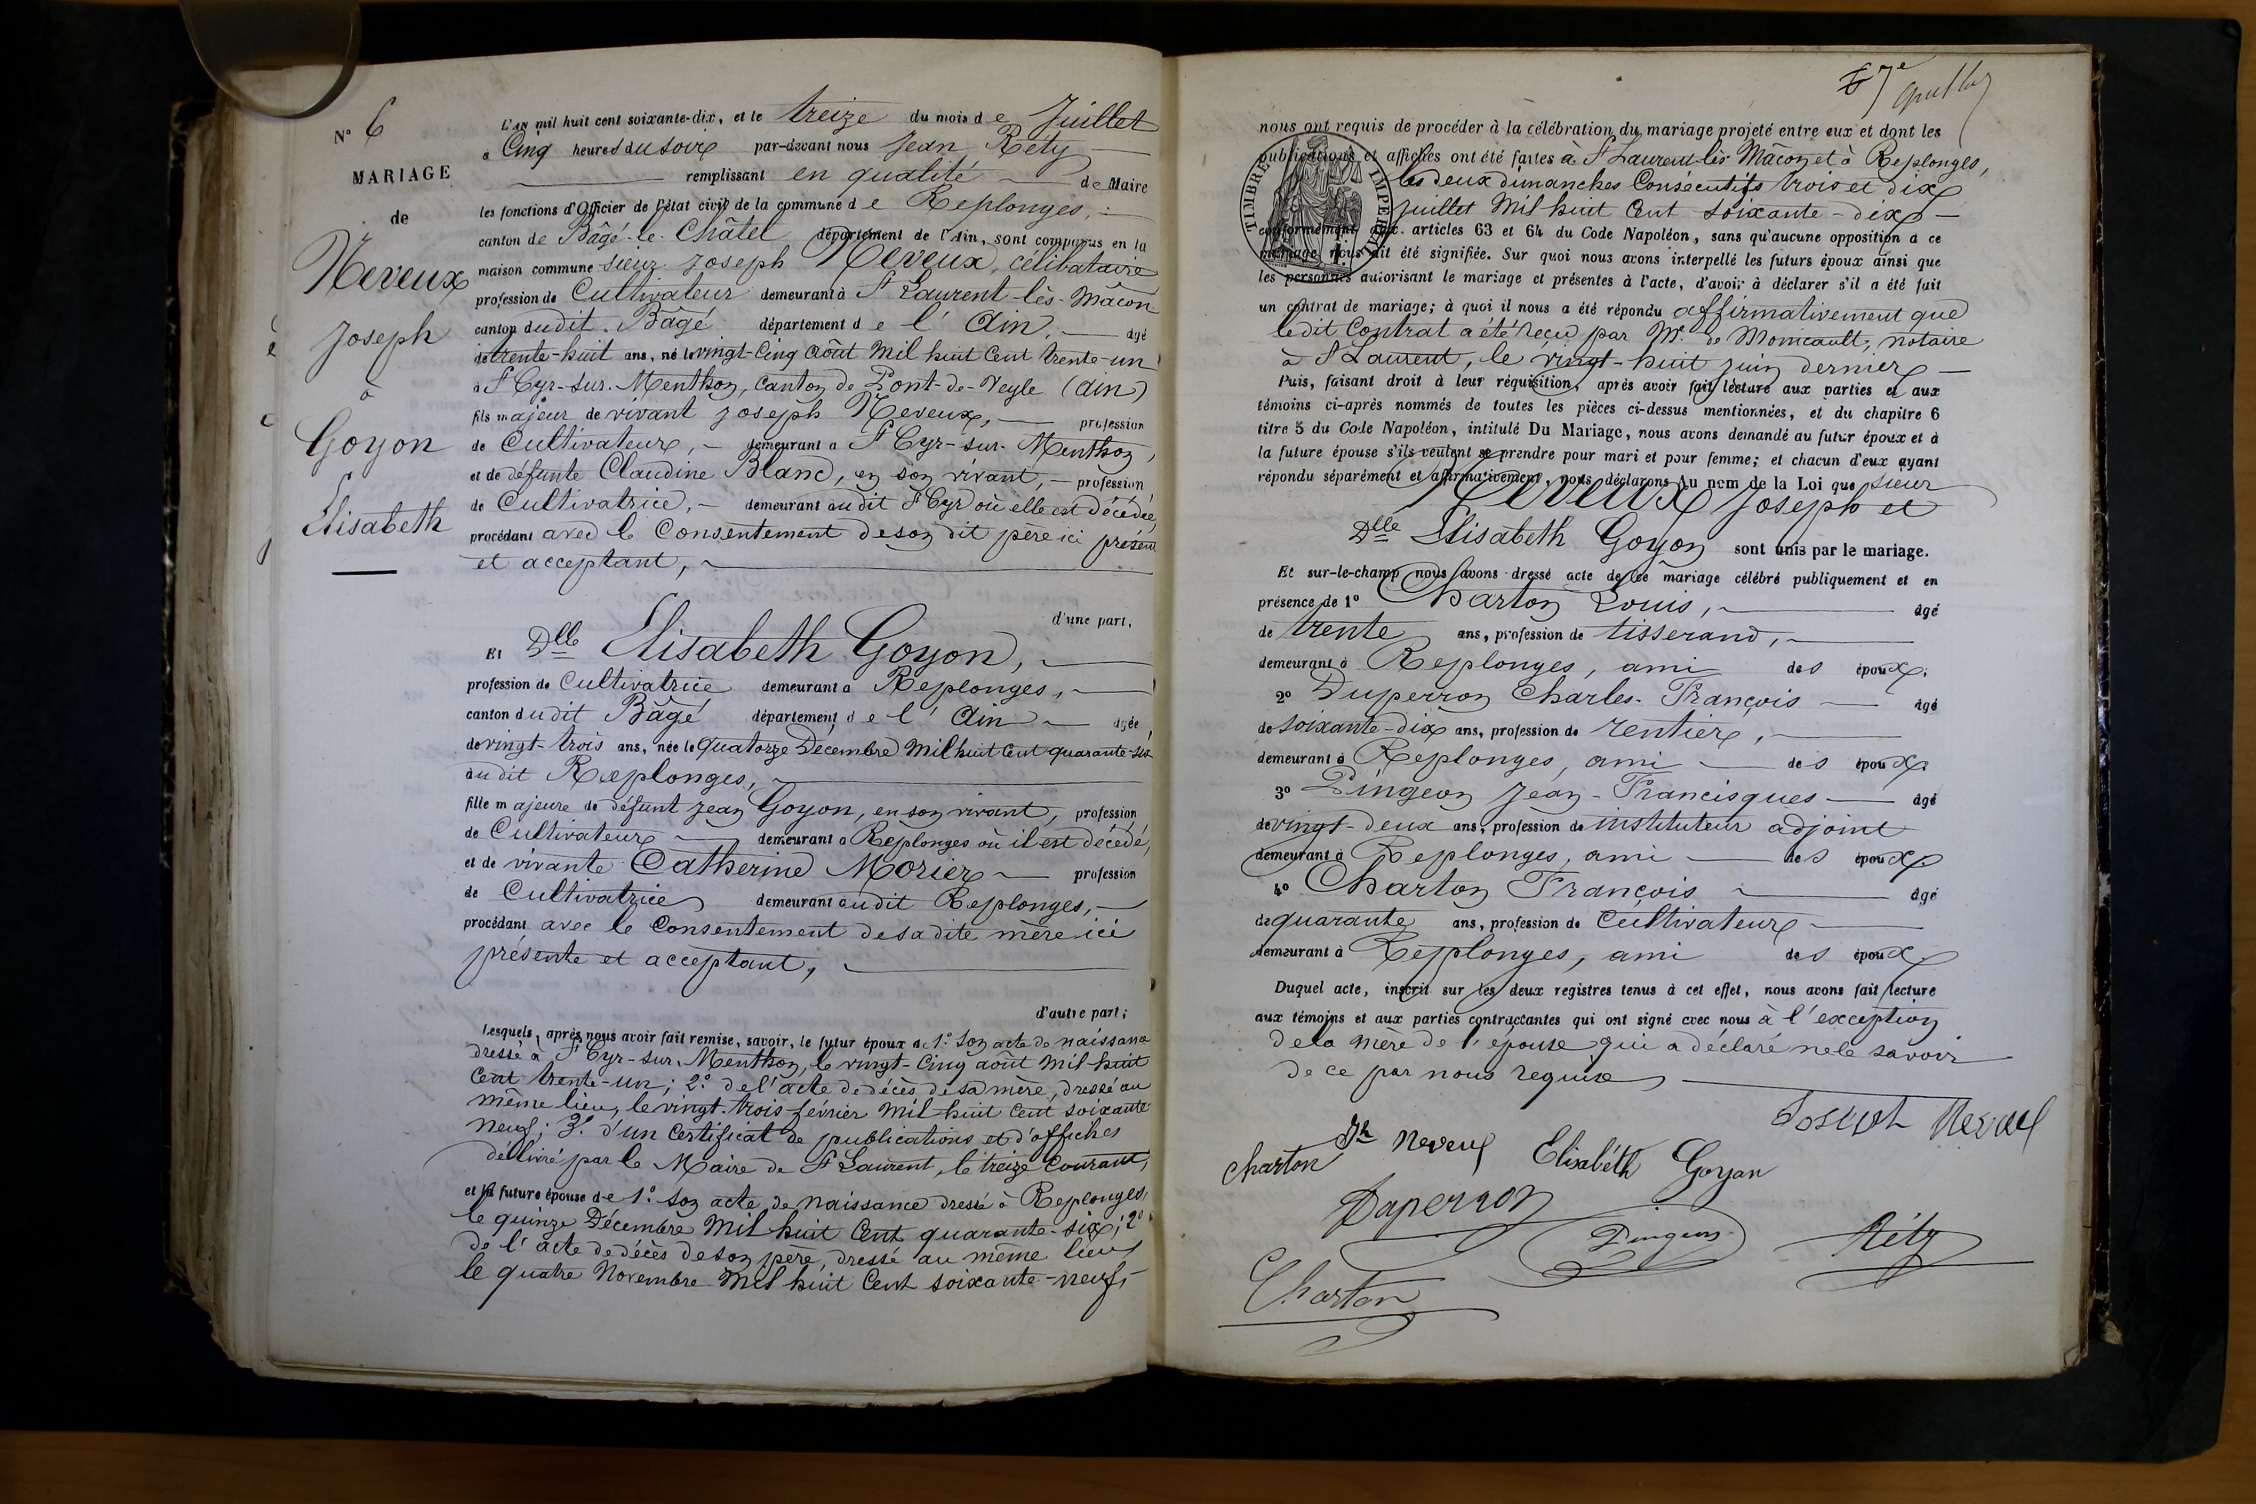 N° 6
MARIAGE
de
Neveux
Joseph
à
Goyon
Elisabeth
L'AN mil huit cent soixante-dix, et le treize du mois de Juillet
à Cinq heures du soir par-devant nous Jean Réty
remplissant en qualité de Maire
les fonctions d'Officier de l'état civil de la commune de Replonges,
canton de Bâgé-le-Châtel département de l'Ain, sont comparus en la
maison commune sieur Joseph Neveux, célibataire
profession de Cultivateur demeurant à St Laurent-lès-Mâcon
canton dudit Bâgé département de l'Ain, âgé
de trente-huit ans, né le vingt-Cinq Août Mil huit Cent trente-un
à St Cyr-sur-Menthon, canton de Pont-de-Veyle (Ain)
fils majeur de vivant Joseph Neveux, profession
de Cultivateur, demeurant à St Cyr-sur-Menthon,
et de défunte Claudine Blanc, en son vivant, profession
de Cultivatrice, demeurant audit St Cyr où elle est décédée,
procédant avec le Consentement de son dit père ici présent
et acceptant,
d'une part,
Et Dlle Elisabeth Goyon,
profession de Cultivatrice demeurant à Replonges,
canton dudit Bâgé département de l'Ain âgée
de vingt-trois ans, née le quatorze Décembre Mil huit Cent quarante-six
audit Replonges,
fille majeure de défunt Jean Goyon, en son vivant, profession
de Cultivateur demeurant à Replonges où il est décédé,
et de vivante Catherine Morier profession
de Cultivatrice demeurant audit Replonges,
procédant avec le Consentement de sa dite mère ici
présente et acceptant,
d'autre part;
Lesquels, après nous avoir fait remise, savoir, le futur époux de 1° Son acte de naissance
dressé à St Cyr-sur-Menthon, le vingt-Cinq août Mil huit
Cent trente-un; 2° de l'acte de décès de sa mère, dressé au
même lieu, le vingt-trois février Mil huit Cent soixante
neuf; 3° d'un Certificat de publications et d'affiches
délivré par le Maire de St Laurent, le treize Courant,
et la future épouse de 1° Son acte de naissance dressé à Replonges,
le quinze Décembre Mil huit Cent quarante-six; 2°
de l'acte de décès de son père, dressé au même lieu
le quatre Novembre Mil huit Cent soixante-neuf,
7e
nous ont requis de procéder à la célébration du mariage projeté entre eux et dont les
publications et affiches ont été faites à St Laurent-lès-Mâcon et à Replonges,
les deux dimanches Consécutifs trois et dix
Juillet Mil huit Cent soixante-dix
conformément aux articles 63 et 64 du Code Napoléon, sans qu'aucune opposition a ce
mariage nous ait été signifiée. Sur quoi nous avons interpellé les futurs époux ainsi que
les personnes autorisant le mariage et présentes à l'acte, d'avoir à déclarer s'il a été fait
un contrat de mariage; à quoi il nous a été répondu affirmativement que
ledit Contrat a été reçu par Me de Monicault, notaire
à St Laurent, le vingt-huit juin dernier
Puis, faisant droit à leur réquisition, après avoir fait lecture aux parties et aux
témoins ci-après nommés de toutes les pièces ci-dessus mentionnées, et du chapitre 6
titre 5 du Code Napoléon, intitulé Du Mariage, nous avons demandé au futur époux et à
la future épouse s'ils veulent se prendre pour mari et pour femme; et chacun d'eux ayant
répondu séparément et affirmativement, nous déclarons Au nom de la Loi que sieur
Neveux Joseph et
Dlle Elisabeth Goyon sont unis par le mariage.
Et sur-le-champ nous avons dressé acte de ce mariage célébré publiquement et en
présence de 1° Charton Louis, âgé
de trente ans, profession de tisserand,
demeurant à Replonges, ami des époux.
2° Duperron Charles-François âgé
de soixante-dix ans, profession de rentier,
demeurant à Replonges, ami des époux.
3° Pingeon Jean-Francisques âgé
de vingt-deux ans, profession de instituteur adjoint
demeurant à Replonges, ami des époux.
4° Charton François âgé
de quarante ans, profession de Cultivateur
demeurant à Replonges, ami des époux.
Duquel acte, inscrit sur les deux registres tenus à cet effet, nous avons fait lecture
aux témoins et aux parties contractantes qui ont signé avec nous à l'exception
de la mère de l'épouse qui a déclaré ne le savoir
de ce par nous requise
Joseph Neveux
Charton Jh Neveux Elisabéth Goyon
Duperron
Pingeon
Réty
Charton
TIMBRE IMPERIAL